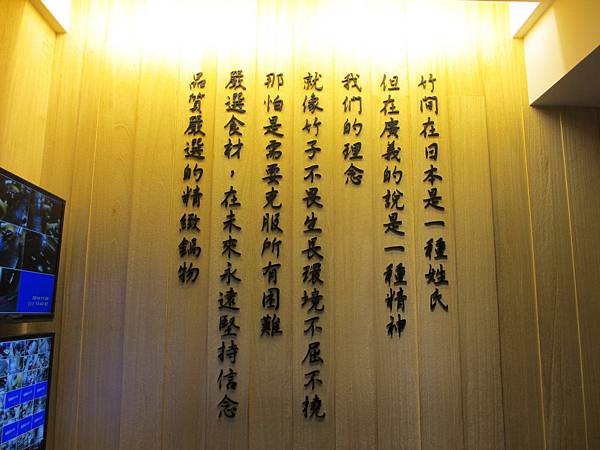 竹間在日本是一種姓氏
但在廣義的說是一種精神
我們的理念
就像竹子不畏生長環境不屈不撓
那怕是需要克服所有困難
嚴選食材，在未來永遠堅持信念
品質嚴選的精緻鍋物